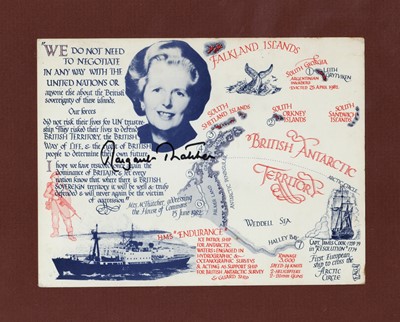 "WE DO NOT NEED
TO NEGOTIATE
IN ANY WAY WITH THE
UNITED NATIONS OR
anyone else about the British
sovereignty of these islands.
Our forces
did not risk their lives for UN trustee-
ship. "They risked their lives to defend
BRITISH TERRITORY, the BRITISH
WAY OF LIFE, & the RIGHT of BRITISH
people to DETERMINE their OWN FUTURE.
I hope we have restored once again the
dominance of BRITAIN & let every
nation know that where there is BRITISH
SOVEREIGN territory it will be well & truly
defended & will never again be the victim
of aggression"
Mrs. M. Thatcher, addressing
the House of Commons
15 June 1982.
Margaret Thatcher
FALKLAND ISLANDS
SOUTH GEORGIA
LEITH
GRYTVIKEN
ARGENTINIAN
EVICTED 25 APRIL 1982
SOUTH
SHETLAND ISLANDS
SOUTH
ORKNEY
ISLANDS
SOUTH
SANDWICH
ISLANDS
BRITISH ANTARCTIC
TERRITORY
WEDDELL SEA
HALLEY BAY
CAPT. JAMES COOK 1728-79
in "RESOLUTION" 1774
First European
ship to cross the
ARCTIC
CIRCLE
HMS "ENDURANCE"
ICE PATROL SHIP
ON ANTARCTIC
WATERS ENGAGED IN
HYDROGRAPHIC &
OCEANOGRAPHIC SURVEYS
& ACTING AS SUPPORT SHIP
FOR BRITISH ANTARCTIC SURVEY
& GUARD SHIP.
TONNAGE
3,600